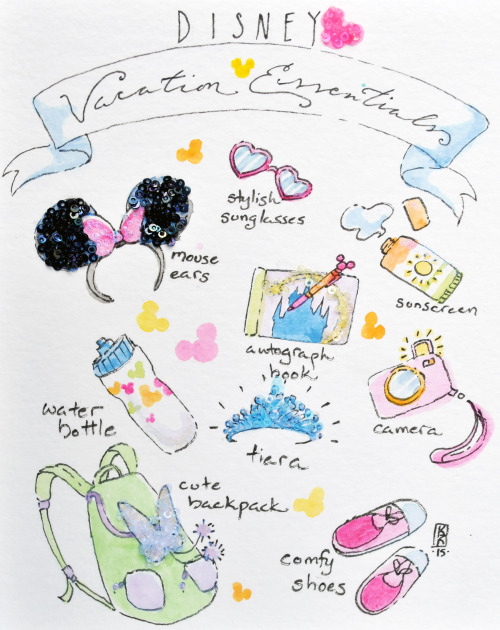 DISNEY
Vacation Essentials
stylish
sunglasses
mouse
ears
sunscreen
autograph
book
water
bottle
tiara
camera
cute
backpack
comfy
shoes
15